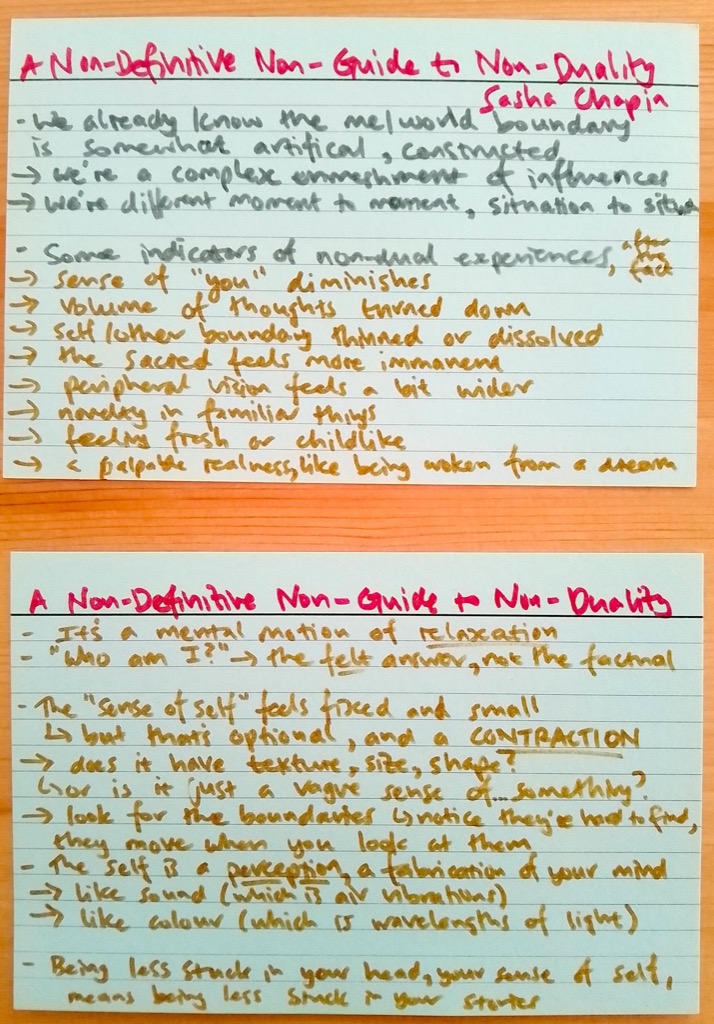 A Non-Definitive Non-Guide to Non-Duality
Sasha Chapin
- We already know the me/world boundary
is somewhat artifical, constructed
→ we're a complex enmeshment of influences
→ we're different moment to moment, situation to situation
- Some indicators of non-dual experiences, after the fact
→ sense of "you" diminishes
→ volume of thoughts turned down
→ self/other boundary thinned or dissolved
→ the sacred feels more immanent
→ peripheral vision feels a bit wider
→ novelty in familiar things
→ feeling fresh or childlike
→ a palpable realness, like being woken from a dream
A Non-Definitive Non-Guide to Non-Duality
- It's a mental motion of relaxation
- "Who am I?" → the felt answer, not the factual
- The "sense of self" feels fixed and small
↳ but that's optional, and a CONTRACTION
→ does it have texture, size, shape?
↳ or is it just a vague sense of...something?
→ look for the boundaries ↳ notice they're hard to find,
they move when you look at them
- The self is a perception, a fabrication of your mind
→ like sound (which is air vibrations)
→ like colour (which is wavelengths of light)
- Being less stuck in your head, your sense of self,
means being less stuck in your stories